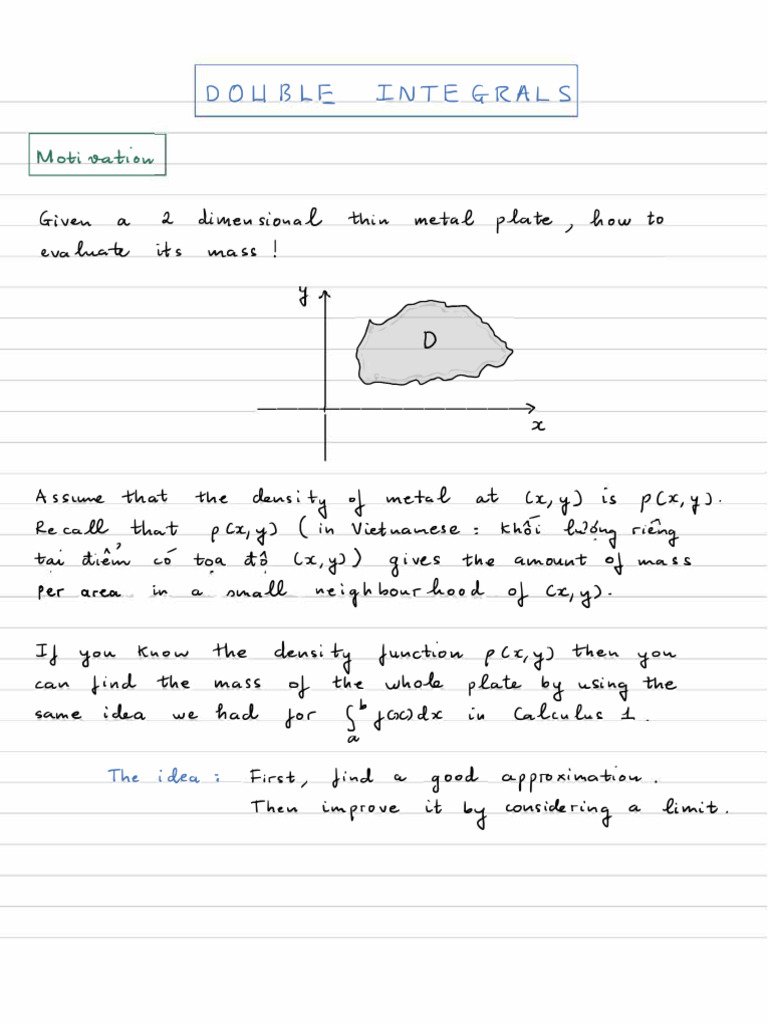 DOUBLE INTEGRALS
Motivation
Given a 2 dimensional thin metal plate, how to
evaluate its mass!
y
D
x
Assume that the density of metal at (x,y) is ρ(x,y).
Recall that ρ(x,y) (in Vietnamese: khối lượng riêng
tại điểm có tọa độ (x,y)) gives the amount of mass
per area in a small neighbourhood of (x,y).
If you know the density function ρ(x,y) then you
can find the mass of the whole plate by using the
same idea we had for ∫_a^b f(x)dx in Calculus 1.
The idea: First, find a good approximation.
Then improve it by considering a limit.